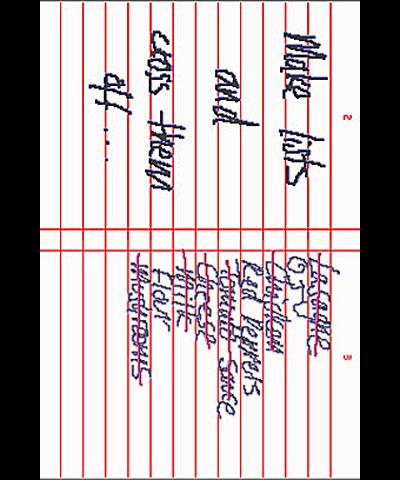 2
Make lists
and
cross them
off ....
3
Lasagne
Chicken
Red Peppers
Tomato Sauce
Cheese
Milk
Flour
Mushrooms